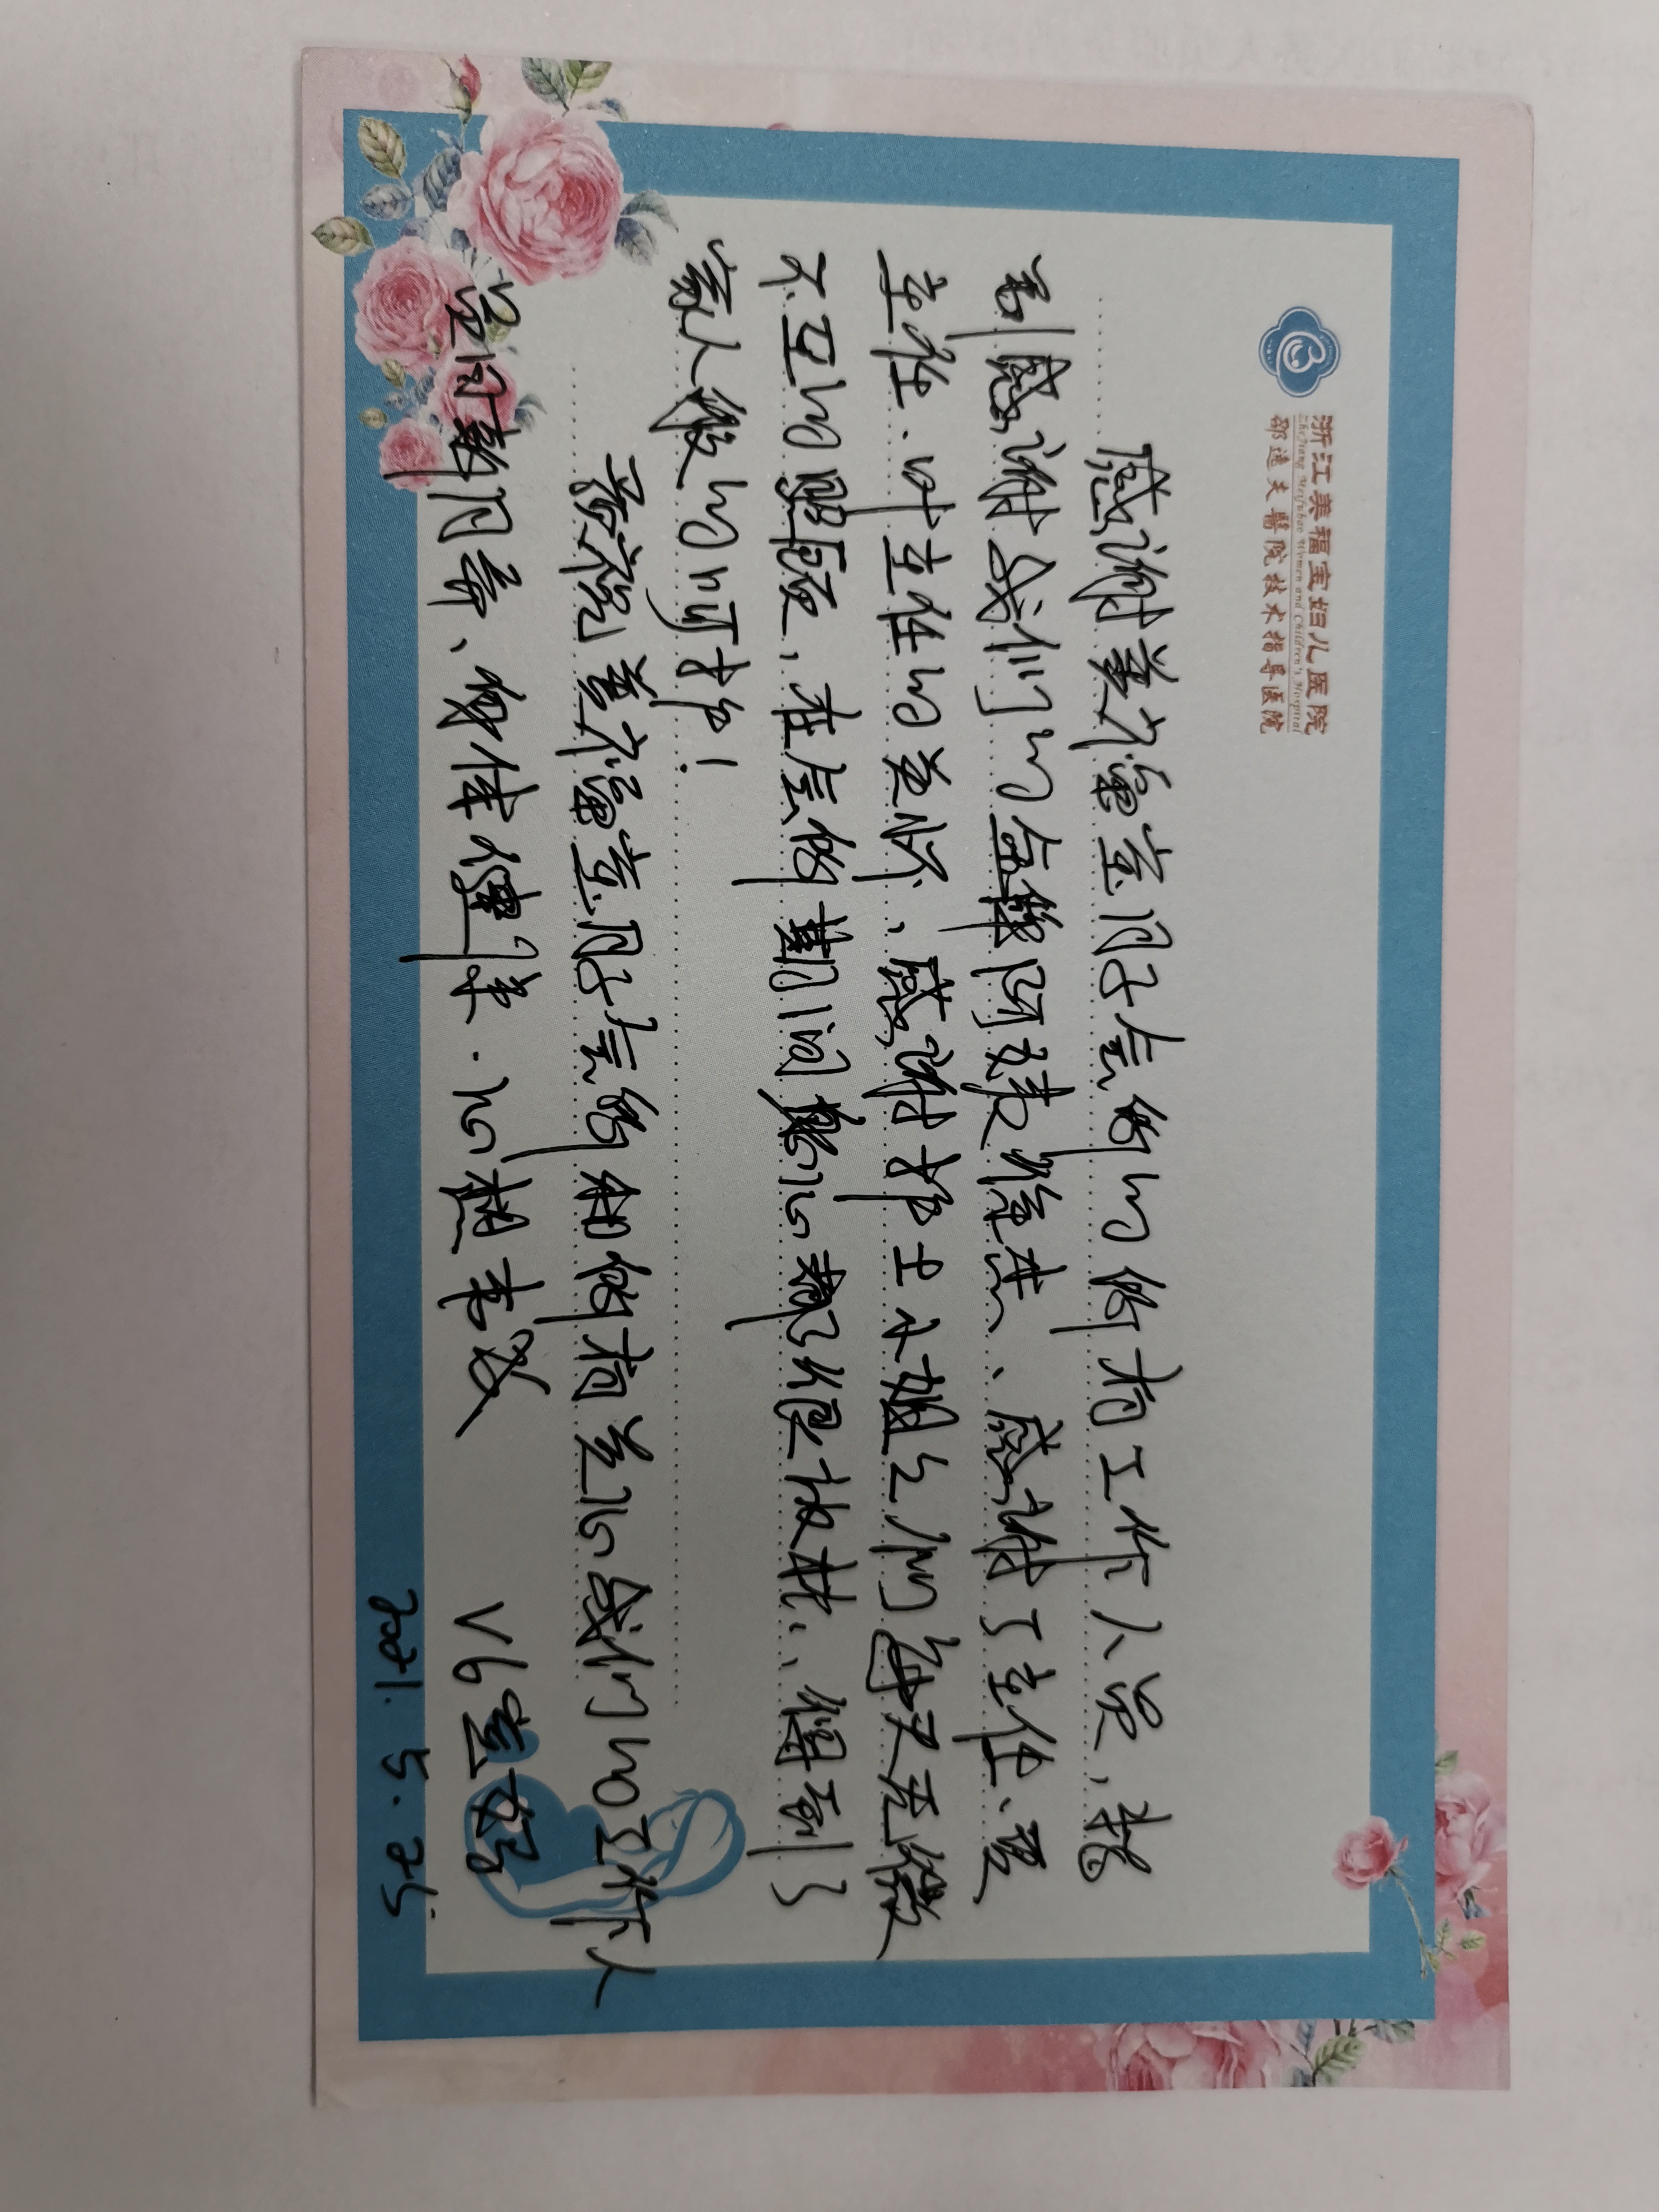 浙江美福宝妇儿医院
Zhejiang Meifubao Women and Children's Hospital
邵逸夫醫院技术指导医院
感谢美福宝月子会所的所有工作人员，特
别感谢我们的金牌阿姨徐杰、感谢丁主任、贾
主任、叶主任的关怀、感谢护士小姐姐们每天无微
不至的照顾，在会所期间身心都很放松、得到了
家人般的呵护！
祝福美福宝月子会所和所有关心我们的工作人
员们新月弄、身体健康、心想事成
V6宝妈
2021.5.25.